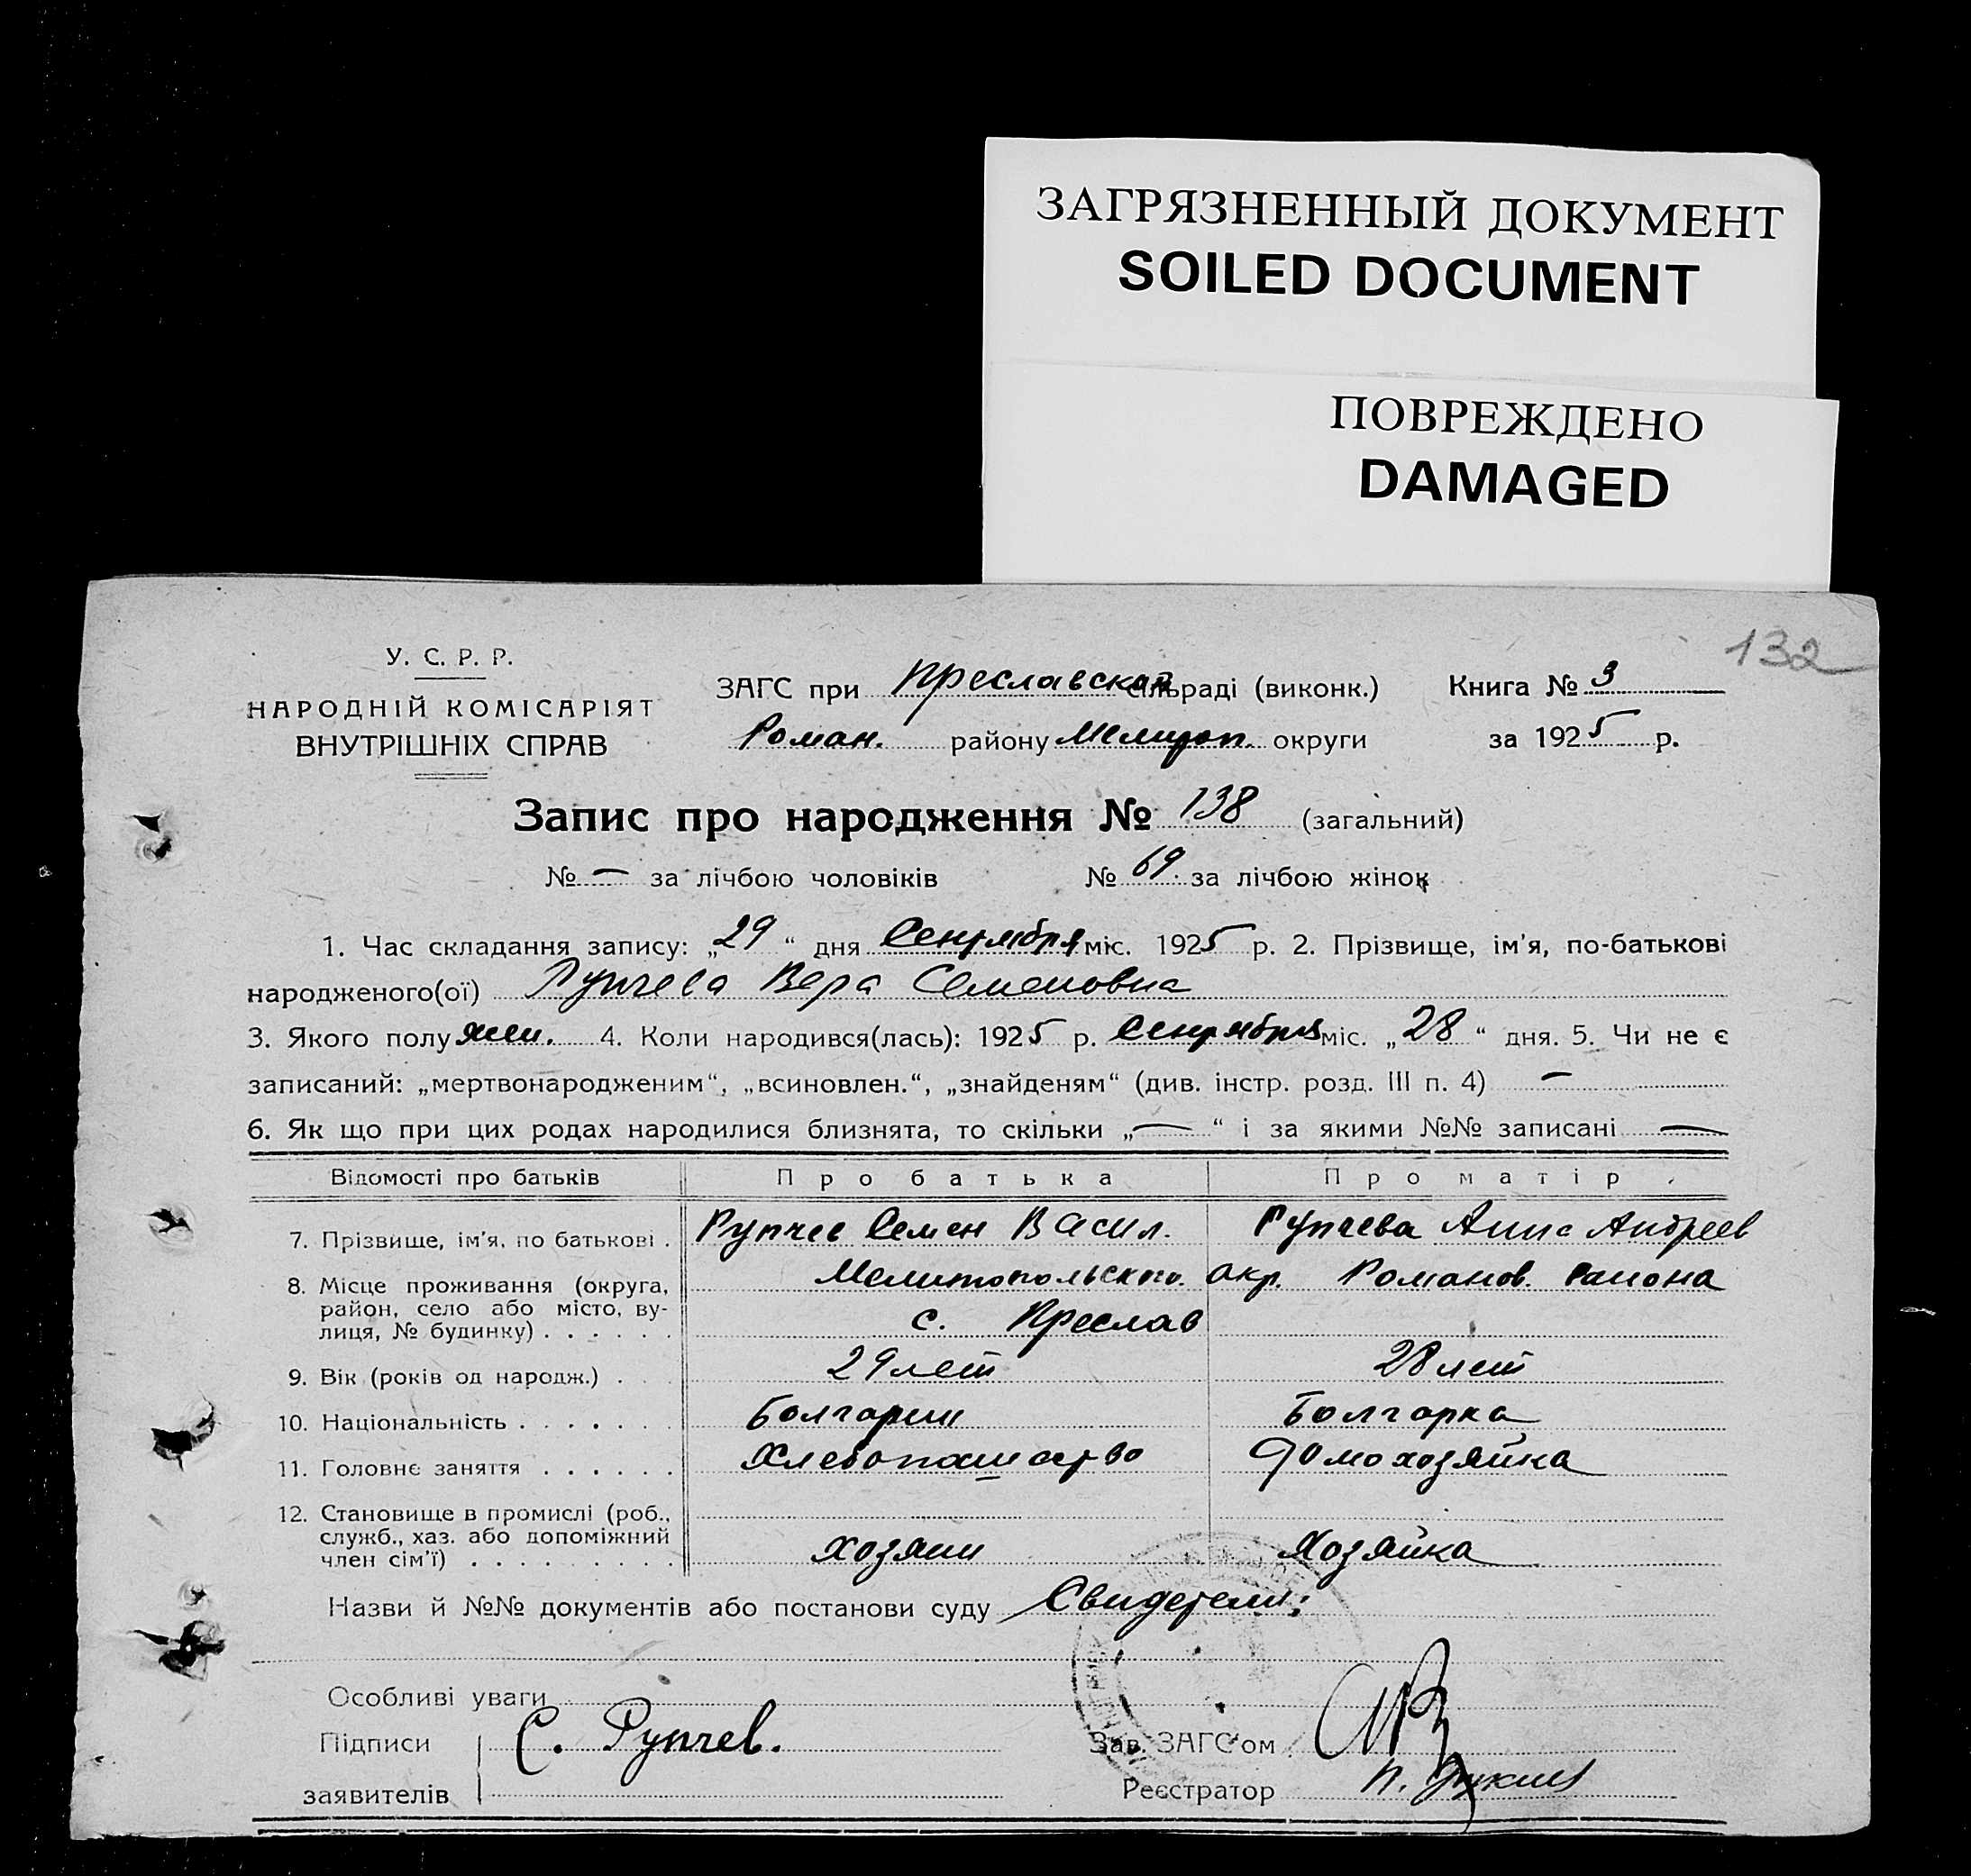 ЗАГРЯЗНЕННЫЙ ДОКУМЕНТ
SOILED DOCUMENT
ПОВРЕЖДЕНО
DAMAGED
132
У. С. Р. Р.
НАРОДНІЙ КОМІСАРІЯТ
ВНУТРІШНІХ СПРАВ
ЗАГС при Преславской сільраді (виконк.)
Роман. району Мелитоп. округи
Книга № 3
за 1925 р.
Запис про народження № 138 (загальний)
№ — за лічбою чоловіків № 69. за лічбою жінок
1. Час складання запису: „29“ дня Сентября міс. 1925 р. 2. Прізвище, ім'я, по-батькові
народженого(ої) Рупчева Вера Семеновна
3. Якого полу жен. 4. Коли народився(лась): 1925 р. Сентября міс. „28“ дня. 5. Чи не є
записаний: „мертвонародженим“, „всиновлен.“, „знайденям“ (див. інстр. розд. III п. 4) —
6. Як що при цих родах народилися близнята, то скільки „—“ і за якими №№ записані —
Відомості про батьків Про батька Про матір
7. Прізвище, ім'я, по батькові . Рупчев Семен Васил. Рупчева Анна Андреев
8. Місце проживання (округа, район, село або місто, вулиця, № будинку) . . . . . . Мелитопольского окр. Романов. района
с. Преслав
9. Вік (років од народж.) . . . 29 лет 28 лет
10. Національність . . . . . . . Болгарин Болгарка
11. Головнє заняття . . . . . . Хлебопашество Домохозяйка
12. Становище в промислі (роб., служб., хаз. або допоміжний член сім'ї) . . . . . . . . . хозяин Хозяйка
Назви й №№ документів або постанови суду Свидетели:
Особливі уваги
Підписи заявителів С. Рупчев.
Зав. ЗАГС'ом
Реєстратор